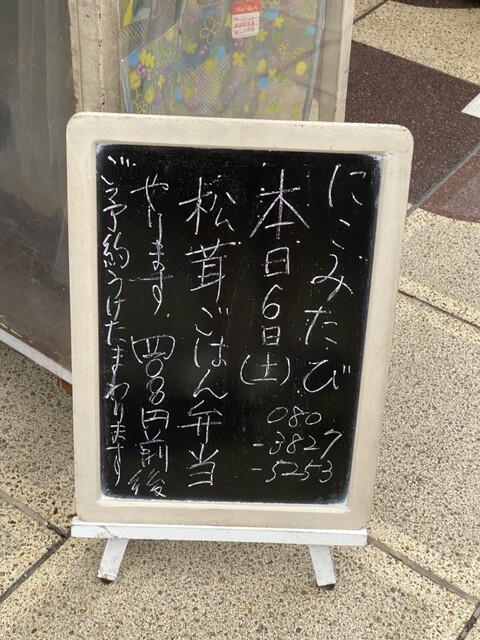 にこみたび
本日6日(土)
080
-3827
-5253
松茸ごはん弁当
やります。四〇〇円前後
ご予約うけたまわります